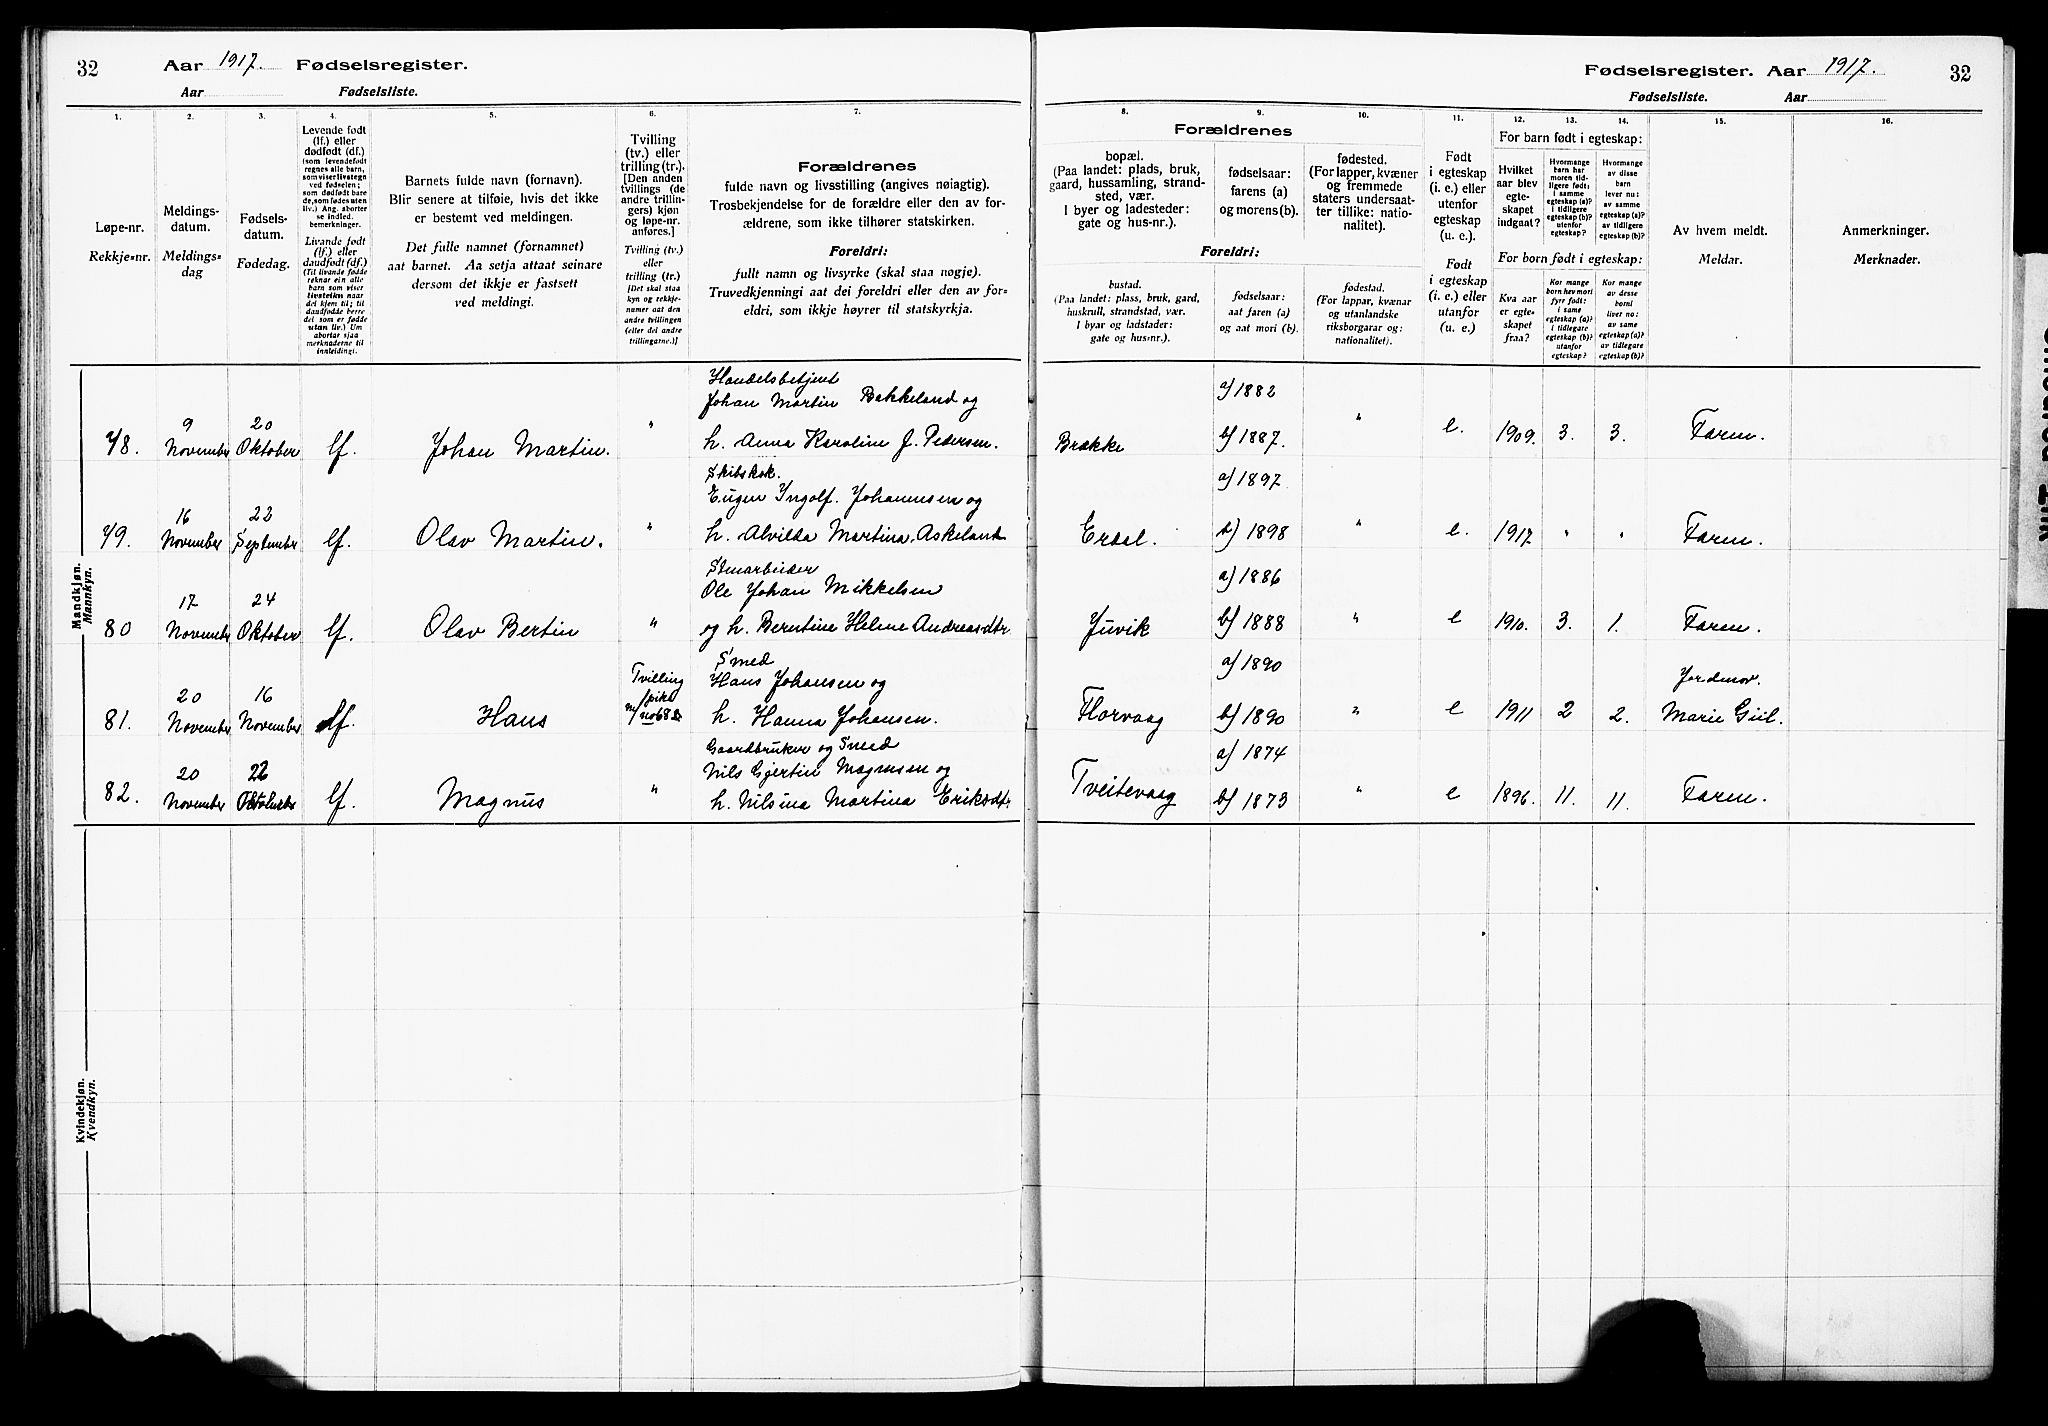 32
Aar 1917. Fødselsregister.
Aar Fødselsliste.
1.
2.
3.
4.
5.
6.
7.
Løpe-nr.
Rekkje=nr.
Meldings-
datum.
Meldings=
dag
Fødsels-
datum.
Fødedag.
Levende født
(lf.) eller
dødfødt (df.)
(som levendefødt
regnes alle barn,
som viser livstegn
ved fødselen;
som dødfødt bare
de, som fødes uten
liv.) Ang. aborter
se indled.
bemerkninger.
Livande født
(lf.) eller
daudfødt (df.)
(Til livande fødde
reknar ein alle
barn som viser
livsteikn naar
dei kjem til; til
daudfødde berre
dei som er fødde
utan liv.) Um
abortar sjaa
merknaderne til
innleidingi.
Barnets fulde navn (fornavn).
Blir senere at tilføie, hvis det ikke
er bestemt ved meldingen.
Det fulle namnet (fornamnet)
aat barnet. Aa setja attaat seinare
dersom det ikkje er fastsett
ved meldingi.
Tvilling
(tv.) eller
trilling (tr.).
[Den anden
tvillings (de
andre trillin-
gers) kjøn
og løpe-nr.
anføres.]
Tvilling (tv.)
eller
trilling (tr.)
[Det skal staa
kyn og rekkje-
numer aat den
andre tvillingen
(eller dei andre
trillingarne.)]
Forældrenes
fulde navn og livsstilling (angives nøiagtig).
Trosbekjendelse for de forældre eller den av for-
ældrene, som ikke tilhører statskirken.
Foreldri:
fullt namn og livsyrke (skal staa nøgje).
Truvedkjenningi aat dei foreldri eller den av for=
eldri, som ikkje høyrer til statskyrkja.
Mandkjøn.
Mannkyn.
78.
9
November
20
Oktober
lf.
Johan Martin.
"
Handelsbetjent
Johan Martin Bakkeland og
h. Anna Karoline J. Pedersen.
79.
16
November
22
September
lf.
Olav Martin.
"
Skibskok.
Eugen Ingolf. Johannsen og
h. Alvilda Martina. Askeland
80
17
November
24
Oktober
lf.
Olav Bertin
"
Stenarbeider
Ole Johan Mikkelsen
og h. Berntine Helene Andreasdtr
81.
20
November
16
November
lf.
Hans
Tvilling
m/ pike
no 68
Smed
Hans Johansen og
h. Hanna Johansen.
82.
20
November
lf.
Magnus
"
Gaardbruker og Smed
Nils Gjertin Magnusen og
h. Nilsina Martina Eriksdtr
Kvindekjøn.
Kvendkyn.
Fødselsregister. Aar 1917.
32
Fødselsliste. Aar
8.
9.
10.
11.
12.
13.
14.
15.
16.
Forældrenes
bopæl.
(Paa landet: plads, bruk,
gaard, hussamling, strand-
sted, vær.
I byer og ladesteder:
gate og hus-nr.).
fødselsaar:
farens (a)
og morens (b).
fødested.
(For lapper, kvæner
og fremmede
staters undersaat-
ter tillike: natio-
nalitet).
Foreldri:
bustad.
(Paa landet: plass, bruk, gard,
huskrull, strandstad, vær.
I byar og ladstader:
gate og hus=nr.).
fødselsaar:
aat faren (a)
og aat mori (b).
fødestad.
(For lappar, kvænar
og utanlandske
riksborgarar og:
nationalitet).
Født
i egteskap
(i. e.) eller
utenfor
egteskap
(u. e.).
Født
i egteskap
(i. e.) eller
utanfor
(u. e.)
For barn født i egteskap:
Hvilket
aar blev
egte-
skapet
indgaat?
Hvormange
barn har
moren tid-
ligere født:
i samme
egteskap (a)?
i tidligere
egteskap (b)?
utenfor
egteskap?
Hvormange
av disse
barn
lever nu:
av samme
egteskap (a)?
av tidligere
egteskap (b)?
For born født i egteskap:
Kva aar
er egte-
skapet
fraa?
Kor mange
born hev mori
fyrr født:
i same
egteskap (a)?
i tidlegare
egteskap (b)?
utanfor
egteskap?
Kor mange
av desse
borni
liver no:
av same
egteskap (a)?
av tidlegare
egteskap (b)?
Av hvem meldt.
Meldar.
Anmerkninger.
Merknader.
Brække
a) 1882
b) 1887.
"
e.
1909.
3.
3.
Faren.
Erdal.
a) 1897
b) 1898
"
e.
1917
"
"
Faren.
Juvik
a) 1886
b) 1888
"
e
1910.
3.
1.
Faren.
Florvaag
a) 1890
b) 1890
"
e
1911
2
2.
Jordmor.
Marie Giil.
Tveitevaag
a) 1874
b) 1873
"
e
1896.
11.
11.
Faren.